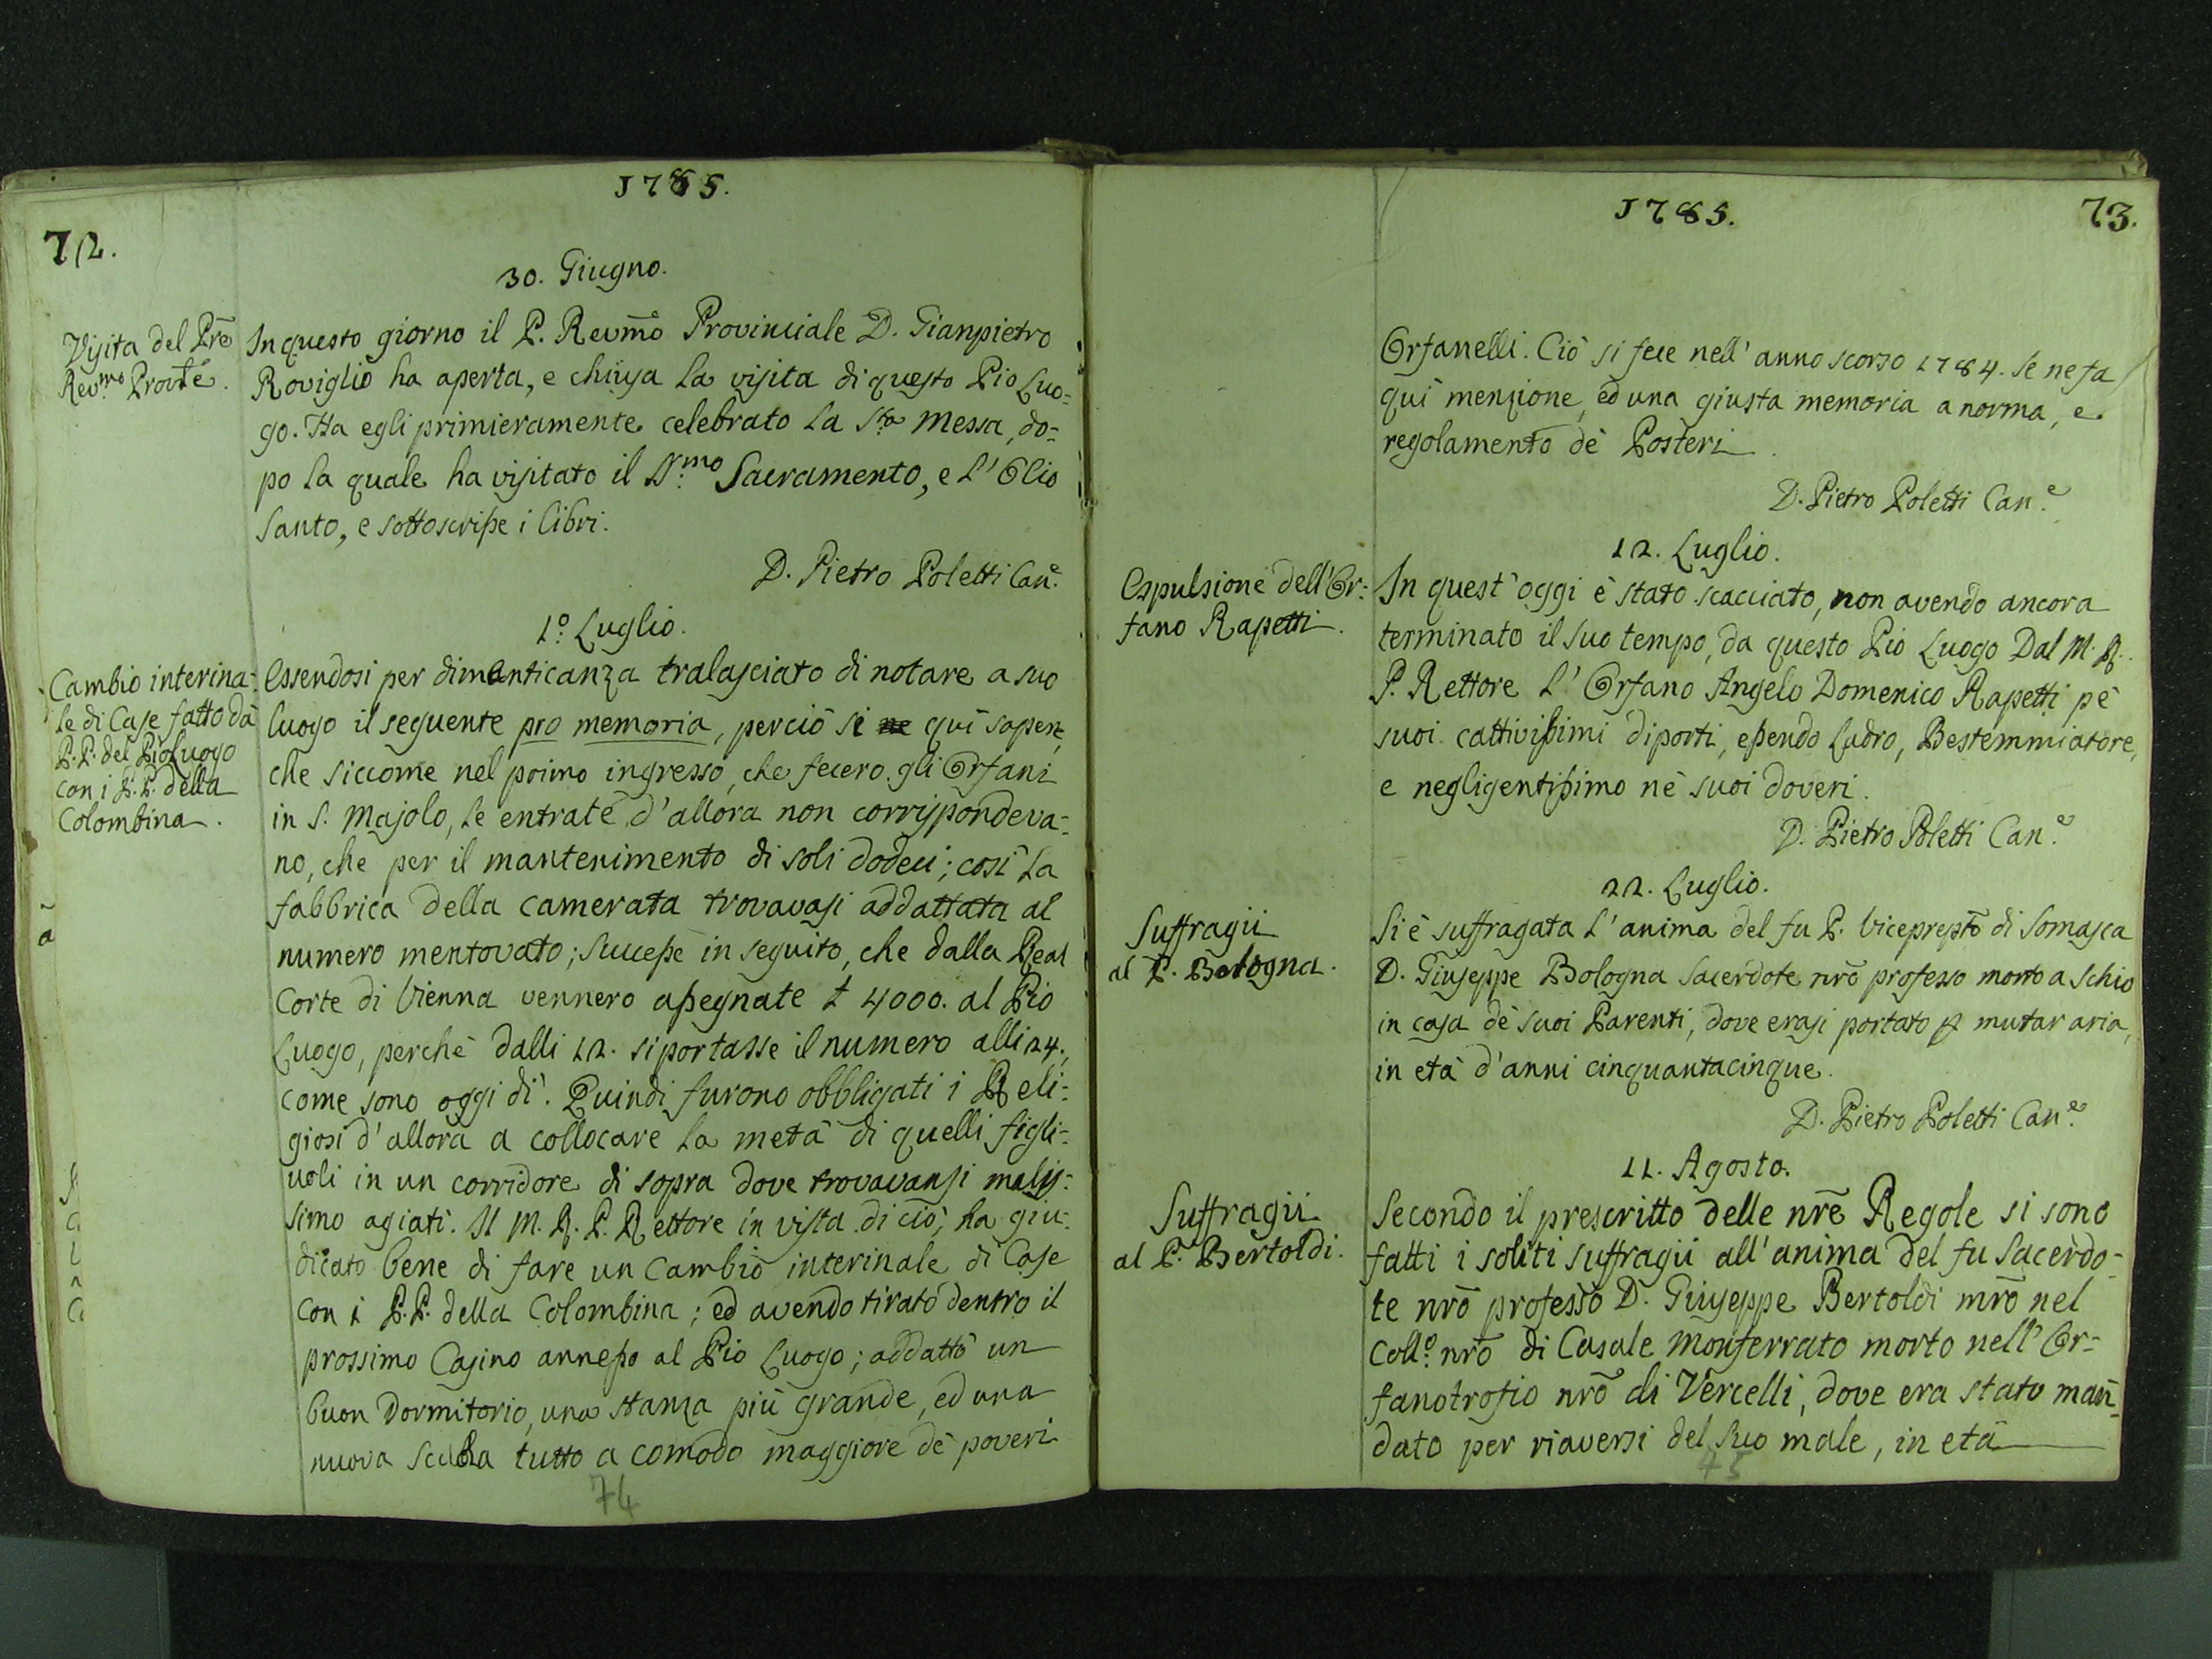 1785.
72.
30. Giugno.
Visita del Prẽ
Rev.mo Provle.
In questo giorno il P. Revmo Provinciale D. Gianpietro
Roviglio ha aperta, e chiusa la visita di questo Pio Luo=
go. Ha egli primieramente celebrato la Sta Messa, do=
po la quale ha visitato il SS.mo Sacramento, e l'Olio
Santo, e sottoscrisse i libri.
D. Pietro Poletti Can.e
1.o Luglio.
Cambio interina=
le di Case fatto dà
P.P. del Pio Luogo
con i P.P. della
Colombina.
Essendosi per dimenticanza tralasciato di notare a suo
luogo il seguente pro memoria, perciò si ne quì sapere,
che siccome nel primo ingresso, che fecero gli Orfani
in S. Majolo, le entrate d'allora non corrispondeva=
no, che per il mantenimento di soli dodeci; così la
fabbrica della camerata trovavasi addattata al
numero mentovato; successe in seguito, che dalla Real
Corte di Vienna vennero assegnate ł 4000. al Pio
Luogo, perchè dalli 12. si portasse il numero alli 24.,
come sono oggi dì. Quindi furono obbligati i Reli=
giosi d'allora a collocare la metà di quelli figli=
uoli in un corridore di sopra dove trovavansi malis=
simo agiati. Il M. R. P. Rettore in vista di ciò, ha giu=
dicato bene di fare un Cambio interinale di Case
con i P.P. della Colombina; ed avendo tirato dentro il
prossimo Casino annesso al Pio Luogo; addattò un
buon Dormitorio, una stanza più grande, ed una
nuova scuola tutto a comodo maggiore dè poveri
74
1785.
73.
Orfanelli. Ciò si fece nell'anno scorso 1784. Se ne fa
quì menzione, ed una giusta memoria a norma, e
regolamento dè Posteri.
D. Pietro Poletti Can.e
12. Luglio.
Espulsione dell'Or=
fano Rapetti.
In quest'oggi è stato scacciato, non avendo ancora
terminato il suo tempo, da questo Pio Luogo Dal M. R.
P. Rettore l'Orfano Angelo Domenico Rapetti pè
suoi cattivissimi diporti, essendo Ladro, Bestemmiatore,
e negligentissimo nè suoi doveri.
D. Pietro Poletti Can.e
22. Luglio.
Suffragii
al P. Bologna.
Si è suffragata l'anima del fu P. Vicepreptõ di Somasca
D. Giuseppe Bologna Sacerdote nrõ professo morto a Schio
in casa dè suoi Parenti, dove erasi portato ꝑ mutar aria,
in età d'anni cinquantacinque.
D. Pietro Poletti Can.e
11. Agosto.
Suffragii
al P. Bertoldi.
Secondo il prescritto delle nrẽ Regole si sono
fatti i soliti suffragii all'anima del fu Sacerdo=
te nrõ professo D. Giuseppe Bertoldi mrõ nel
Coll.o nrõ di Casale Monferrato morto nell'Or=
fanotrofio nrõ di Vercelli, dove era stato man=
dato per riaversi del suo male, in età
45